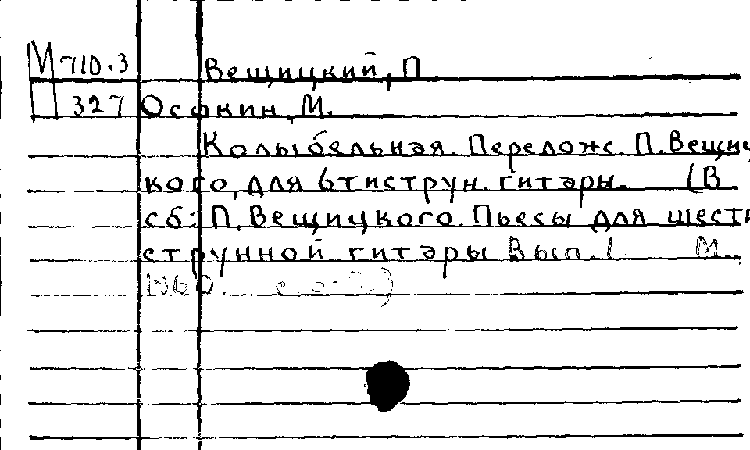 М 710.3 Вещицкий, П
327 Осокин, М.
Колыбельная. Перелож. П. Вещиц
кого, для 6тиструн. гитары. (В
сб: П. Вещицкого. Пьесы для шести
струнной гитары Вып. 1 М.
1960.